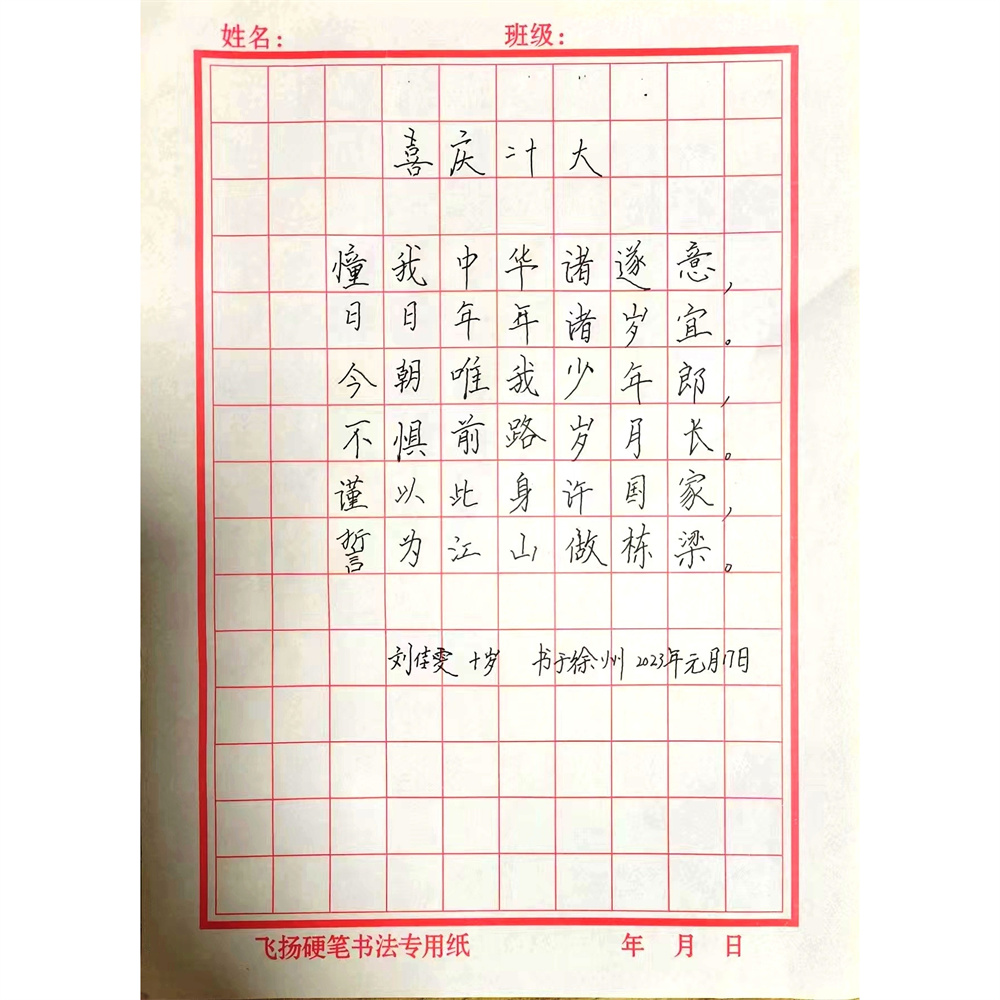 姓名: 班级:
喜庆二十大
憧我中华诸遂意,
日日年年诸岁宜。
今朝唯我少年郎,
不惧前路岁月长。
谨以此身许国家,
誓为江山做栋梁。
刘佳雯 十岁 书于徐州 2023年元月17日
飞扬硬笔书法专用纸 年 月 日